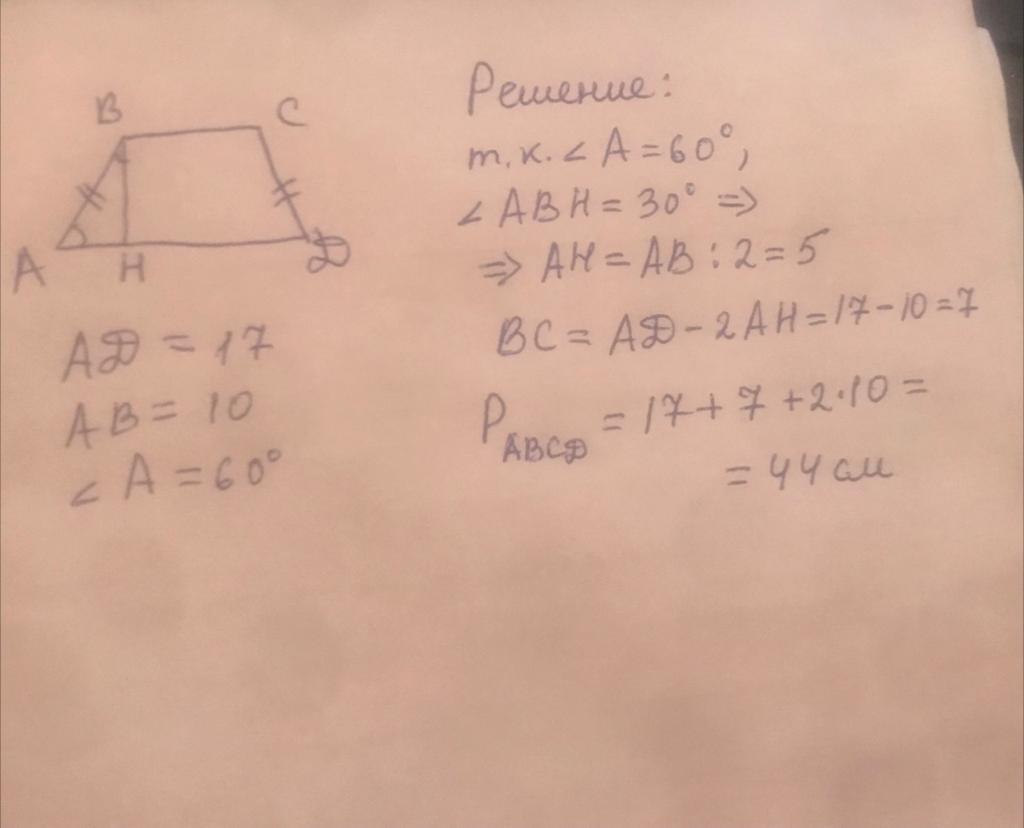 B C
A H D
AD = 17
AB = 10
∠ A = 60°
Решение:
т.к. ∠ A = 60°,
∠ ABH = 30° ⇒
⇒ AH = AB : 2 = 5
BC = AD - 2AH = 17 - 10 = 7
P_ABCD = 17 + 7 + 2·10 =
= 44 см